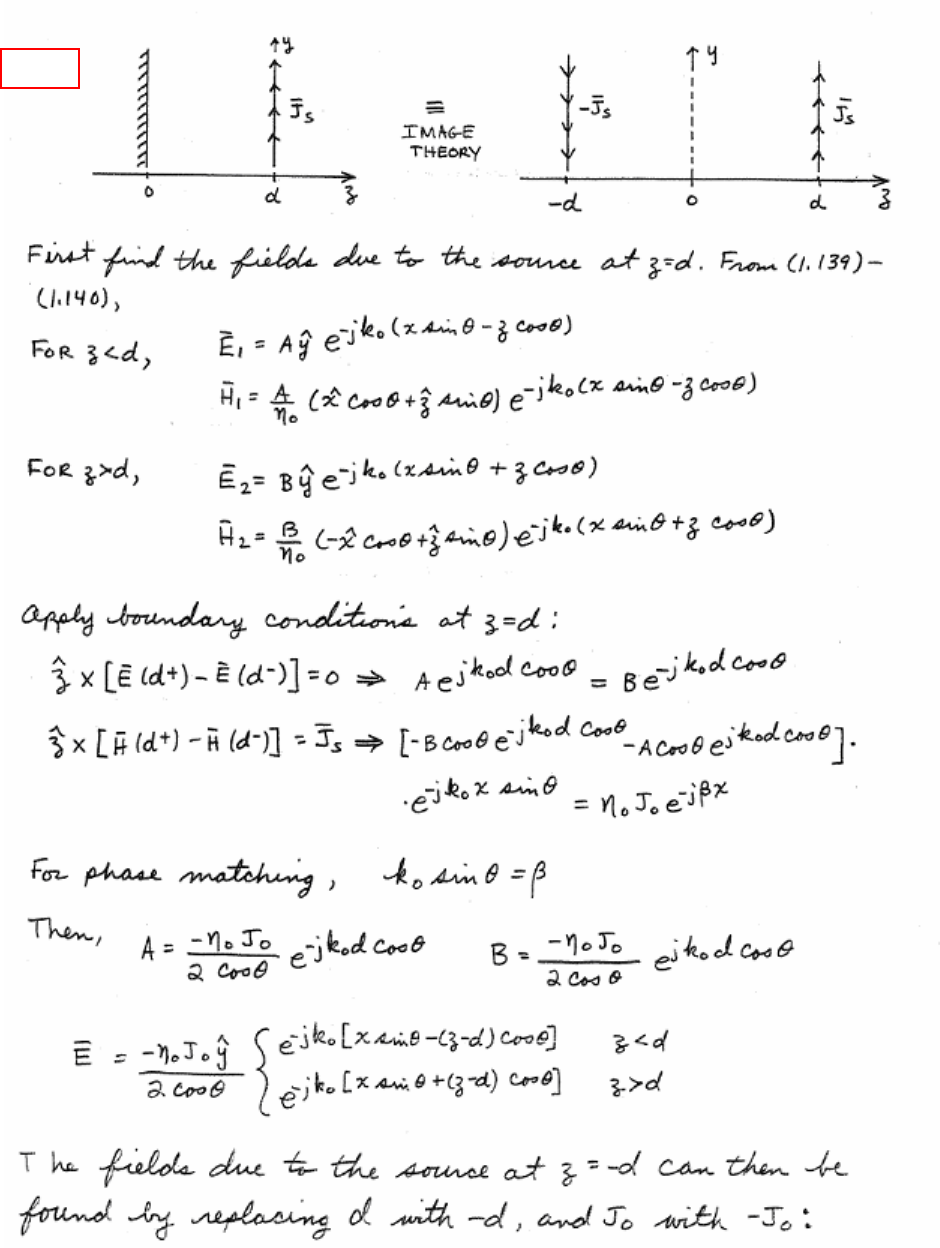 y y
J̄s ≡ -J̄s J̄s
IMAGE
THEORY
0 d z -d 0 d z
First find the fields due to the source at z=d. From (1.139)-
(1.140),
FOR z<d, Ē₁ = A ŷ e^{-jk₀(x sin θ - z cos θ)}
H̄₁ = A/η₀ (x̂ cos θ + ẑ sin θ) e^{-jk₀(x sin θ - z cos θ)}
FOR z>d, Ē₂ = B ŷ e^{-jk₀(x sin θ + z cos θ)}
H̄₂ = B/η₀ (-x̂ cos θ + ẑ sin θ) e^{-jk₀(x sin θ + z cos θ)}
Apply boundary conditions at z=d:
ẑ × [Ē(d+) - Ē(d-)] = 0 ⇒ A e^{jk₀d cos θ} = B e^{-jk₀d cos θ}
ẑ × [H̄(d+) - H̄(d-)] = J̄s ⇒ [-B cos θ e^{-jk₀d cos θ} - A cos θ e^{jk₀d cos θ}]·
·e^{-jk₀x sin θ} = η₀ J₀ e^{-jβx}
For phase matching, k₀ sin θ = β
Then, A = -η₀J₀/2 cos θ e^{-jk₀d cos θ} B = -η₀J₀/2 cos θ e^{jk₀d cos θ}
Ē = -η₀J₀ŷ/2 cos θ { e^{-jk₀[x sin θ - (z-d) cos θ]} z<d
e^{-jk₀[x sin θ + (z-d) cos θ]} z>d
The fields due to the source at z = -d can then be
found by replacing d with -d, and J₀ with -J₀: